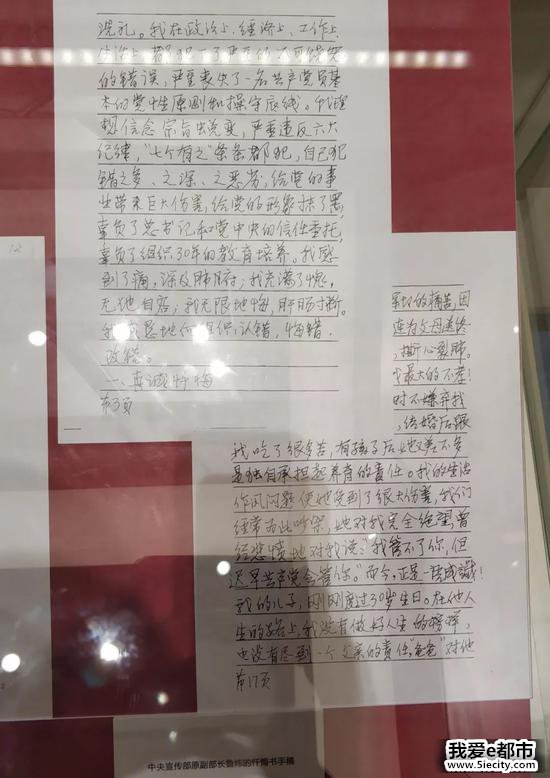 洗礼。我在政治上、经济上、工作上、
生活上都犯下了严重的不可饶恕
的错误，严重丧失了一名共产党员基
本的党性原则和操守底线。我理
想信念宗旨出蜕变，严重违反六大
纪律，“七个有之”条条都犯，自己犯
错之多、之深、之恶劣，给党的事
业带来巨大伤害，给党的形象抹了黑，
辜负了总书记和党中央的信任重托，
辜负了组织30年的教育培养。我感
到了痛，深及肺腑；我充满了愧，
无地自容；我无限地悔，肝肠寸断。
我诚恳地向组织认错，悔错，
改错。
一、真诚忏悔
第3页
12
的痛苦，因
连为父母送终
，撕心裂肺。
最大的不孝！
时不嫌弃我
，结婚后跟
我吃了很多苦，有孩子后她又差不多
是独自承担起养育的责任。我的生活
作风问题使她受到了很大伤害，我们
经常为此吵架，她对我完全绝望，曾
经悲愤地对我说：“我管不了你，但
迟早共产党会管你。”而今，正是一语成谶！
我的儿子，刚刚度过30岁生日。在他人
生的路上，我没有做好人生的榜样，
也没有尽到一个父亲的责任，“爸爸”对他
第17页
中央宣传部原副部长鲁炜的忏悔书手稿
我爱e都市
www.51ecity.com